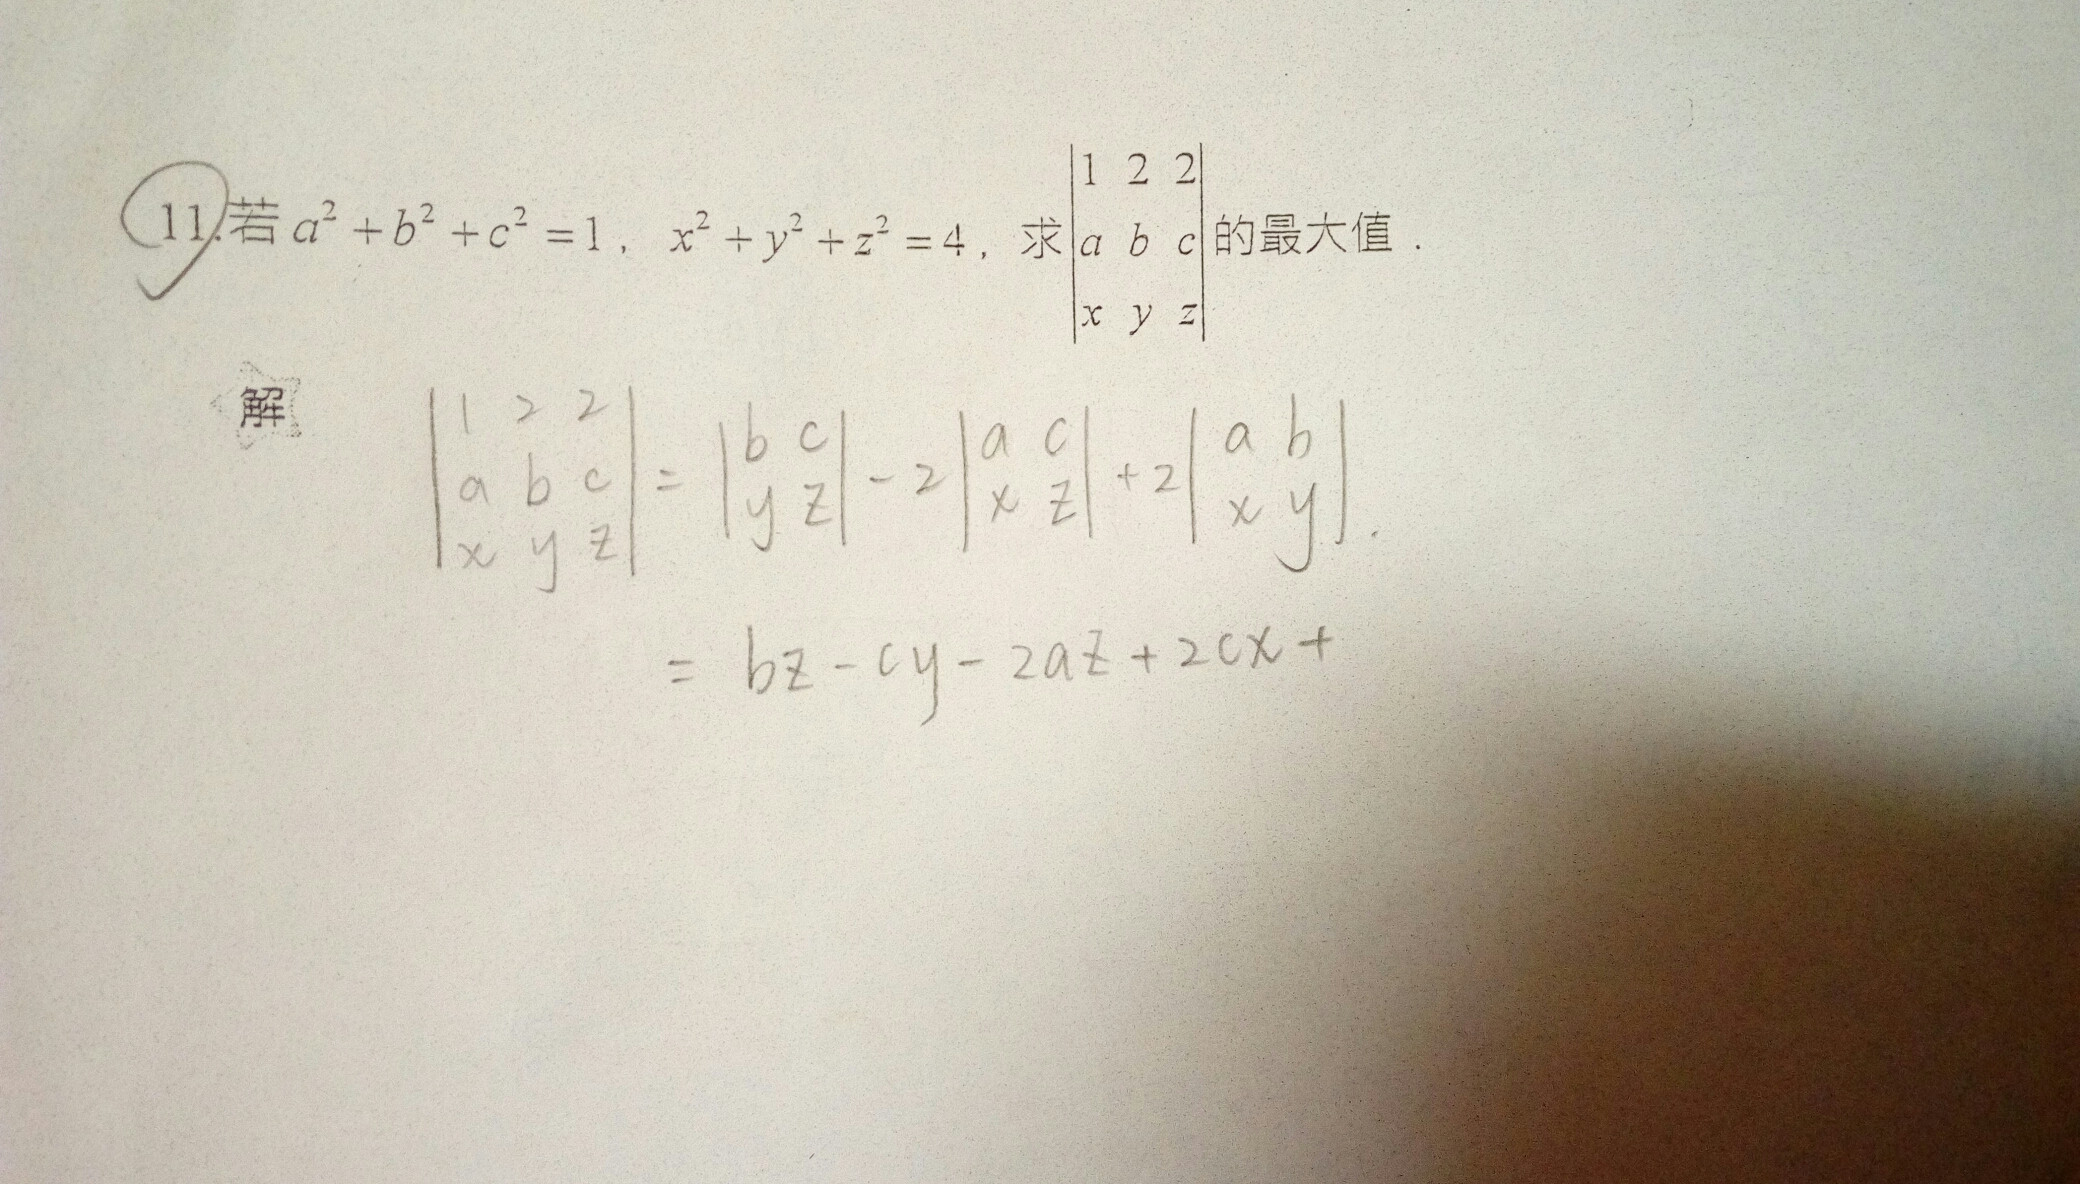 11. 若 a² + b² + c² = 1， x² + y² + z² = 4， 求 |1 2 2; a b c; x y z| 的最大值．
解 |1 2 2; a b c; x y z| = |b c; y z| - 2|a c; x z| + 2|a b; x y|.
= bz - cy - 2az + 2cx +